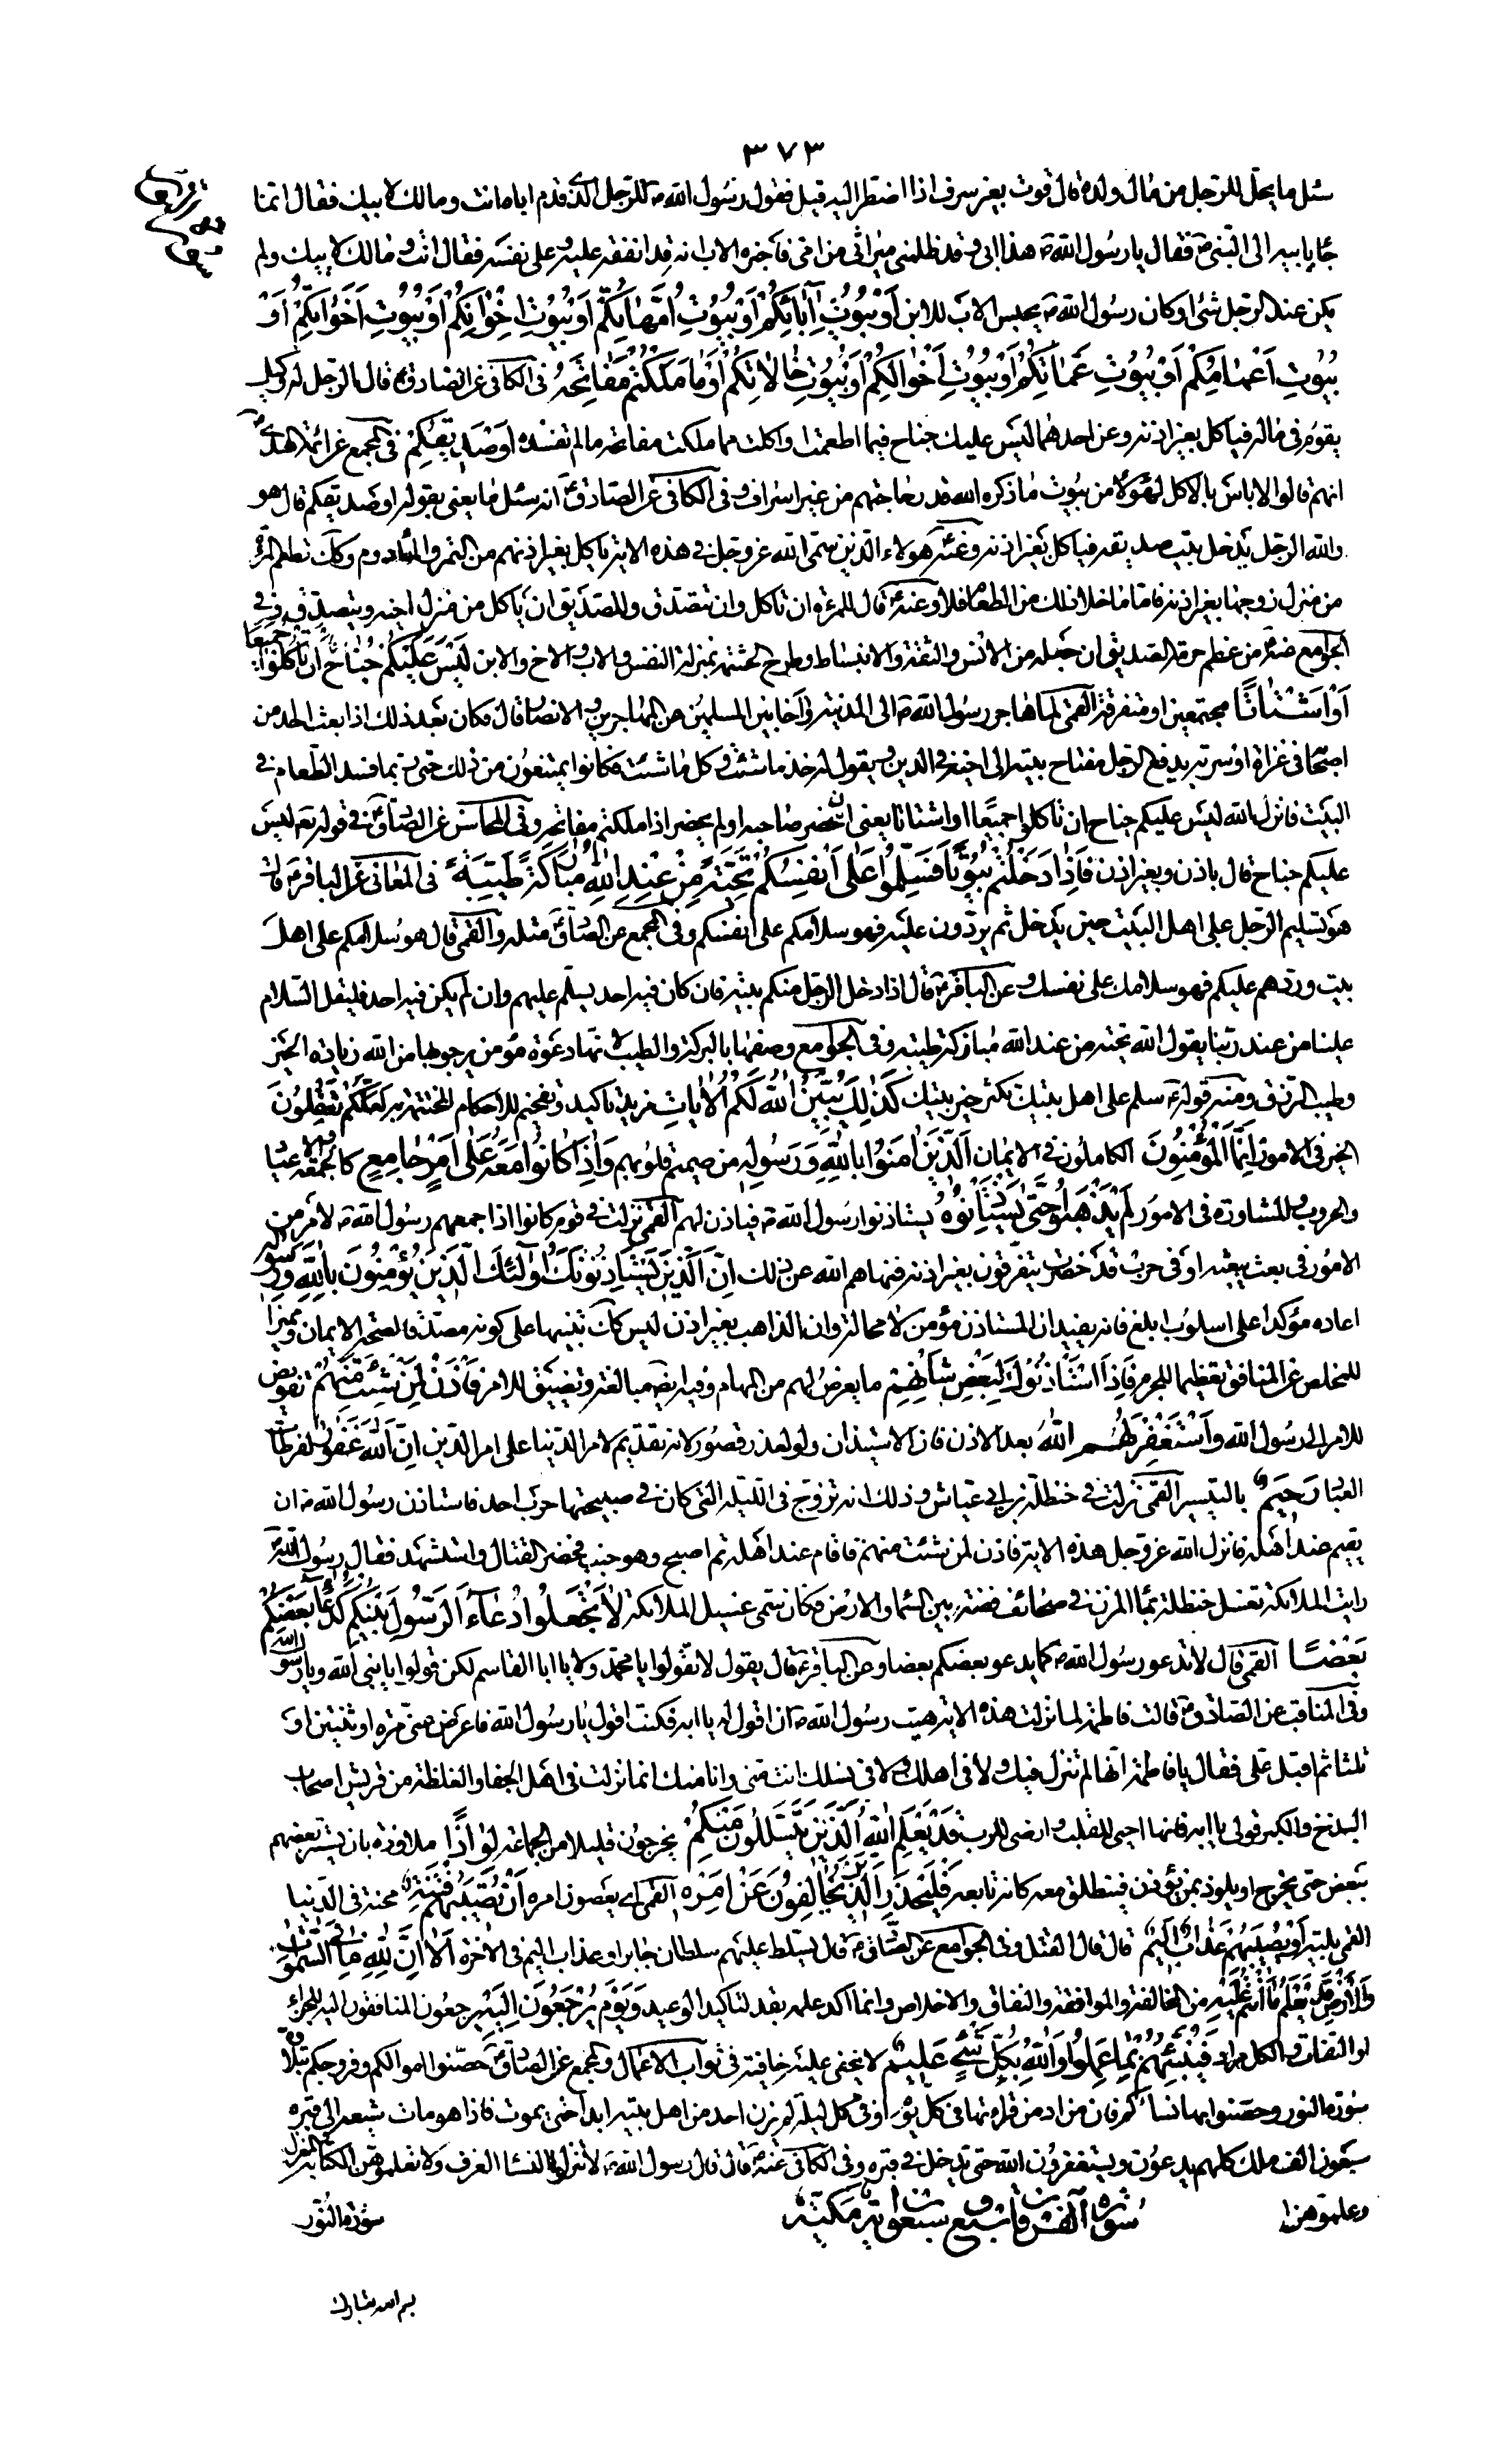 ٣٧٣
سئل ما يحل للرجل من مال ولده قال قوت بغير سرف اذا اضطر اليه قيل فقول رسول الله ص للرجل الذى قدم اباه انت ومالك لابيك فقال انما
جاء بابيه الى النبى ص فقال يا رسول الله ص هذا ابى وقد ظلمنى ميراثى من امى فاخبره الاب انه قد انفقه عليه وعلى نفسه فقال انت ومالك لابيك ولم
يكن عند الرجل شئ او كان رسول الله ص يحبس الاب للابن اَوْ بُيُوتِ آبَائِكُمْ اَوْ بُيُوتِ اُمَّهَاتِكُمْ اَوْ بُيُوتِ اِخْوَانِكُمْ اَوْ بُيُوتِ اَخَوَاتِكُمْ اَوْ
بُيُوتِ اَعْمَامِكُمْ اَوْ بُيُوتِ عَمَّاتِكُمْ اَوْ بُيُوتِ اَخْوَالِكُمْ اَوْ بُيُوتِ خَالَاتِكُمْ اَوْ مَا مَلَكْتُمْ مَفَاتِحَهُ فى الكافى عن الصادق ع قال الرجل له وكيل
يقوم فى ماله فياكل بغير اذنه وعن احدهما ليس عليك جناح فيما اطعمت او اكلت مما ملكت مفاتحه ما لم تفسده اَوْ صَدِيقِكُمْ فى المجمع عن ائمة الهدى
انهم قالوا لا باس بالاكل لهؤلاء من بيوت ما ذكره الله قدر حاجتهم من غير اسراف وفى الكافى عن الصادق ع انه سئل ما يعنى بقوله او صديقكم قال هو
والله الرجل يدخل بيت صديقه فياكل بغير اذنه وعنه ع هؤلاء الذين سمى الله عز وجل فى هذه الاية ياكل بغير اذنهم من التمر والمأدوم وكك تطعم المرءة
من منزل زوجها بغير اذنه فاما ما خلا ذلك من الطعام فلا وعنه ع قال للمرءة ان تاكل وان تتصدق وللصديق ان ياكل من منزل اخيه ويتصدق وفى
الجوامع عنه ع من عظم حرمة الصديق ان جعله من الانس والثقة والانبساط وطرح الحشمة بمنزلة النفس والاب والاخ والابن لَيْسَ عَلَيْكُمْ جُنَاحٌ اَنْ تَاْكُلُوا جَمِيعًا
اَوْ اَشْتَاتًا مجتمعين او متفرقين القمى لما هاجر رسول الله ص الى المدينة واخا بين المسلمين من المهاجرين والانصار قال فكان بعد ذلك اذا بعث احدا من
اصحابه فى غزاة او سرية يدفع الرجل مفتاح بيته الى اخيه فى الدين ويقول له خذ ما شئت وكل ما شئت فكانوا يمتنعون من ذلك حتى ربما فسد الطعام فى
البيت فانزل الله ليس عليكم جناح ان تاكلوا جميعا او اشتاتا يعنى ان حضر صاحبه او لم يحضر اذا ملكتم مفاتحه وفى المحاسن عن الصادق ع فى قوله تع ليس
عليكم جناح قال باذن وبغير اذن فَاِذَا دَخَلْتُمْ بُيُوتًا فَسَلِّمُوا عَلَى اَنْفُسِكُمْ تَحِيَّةً مِنْ عِنْدِ اللهِ مُبَارَكَةً طَيِّبَةً فى المعانى عن الباقر ع قال
هو تسليم الرجل على اهل البيت حين يدخل ثم يردون عليه فهو سلامكم على انفسكم وفى المجمع عن الصادق ع مثله والقمى قال هو سلامكم على اهل
بيت وردهم عليكم فهو سلامك على نفسك وعن الباقر ع قال اذا دخل الرجل منكم بيته فان كان فيه احد يسلم عليهم وان لم يكن فيه احد فليقل السلام
علينا من عند ربنا يقول الله تحية من عند الله مباركة طيبة وفى الجوامع وصفها بالبركة والطيب لانها دعوة مؤمن يرجو بها من الله زيادة الخير
وطيب الرزق ومنه قوله ع سلم على اهل بيتك يكثر خير بيتك كَذَلِكَ يُبَيِّنُ اللهُ لَكُمُ الْآيَاتِ مزيد تاكيد وتفخيم للاحكام المختتمة به لَعَلَّكُمْ تَعْقِلُونَ
الخير فى الامور اِنَّمَا الْمُؤْمِنُونَ الكاملون فى الايمان الَّذِينَ آمَنُوا بِاللهِ وَرَسُولِهِ من صميم قلوبهم وَاِذَا كَانُوا مَعَهُ عَلَى اَمْرٍ جَامِعٍ كالجمعة والاعياد
والحروب والمشاورة فى الامور لَمْ يَذْهَبُوا حَتَّى يَسْتَاْذِنُوهُ يستاذنوا رسول الله ص فياذن لهم القمى نزلت فى قوم كانوا اذا جمعهم رسول الله ص لامر من
الامور فى بعث يبعثه او فى حرب قد حضرت يتفرقون بغير اذنه فنهاهم الله عن ذلك اِنَّ الَّذِينَ يَسْتَاْذِنُونَكَ اُولَئِكَ الَّذِينَ يُؤْمِنُونَ بِاللهِ وَرَسُولِهِ
اعاده مؤكدا على اسلوب ابلغ فانه يفيد ان المستاذن مؤمن لا محالة وان الذاهب بغير اذن ليس كك تنبيها على كونه مصداقا لصحة الايمان ومميزا
للمخلص عن المنافق وتعظيما للجرم فَاِذَا اسْتَاْذَنُوكَ لِبَعْضِ شَاْنِهِمْ ما يعرض لهم من المهام وفيه ايضا مبالغة وتضييق للامر فَاْذَنْ لِمَنْ شِئْتَ مِنْهُمْ تفويض
للامر الى رسول الله وَاسْتَغْفِرْ لَهُمُ اللهَ بعد الاذن فان الاستيذان ولو لعذر قصور لانه تقديم لامر الدنيا على امر الدين اِنَّ اللهَ غَفُورٌ لفرطات
العباد رَحِيمٌ بالتيسير القمى نزلت فى حنظلة بن ابى عياش وذلك انه تزوج فى الليلة التى كان فى صبيحتها حرب احد فاستاذن رسول الله ص ان
يقيم عند اهله فانزل الله عز وجل هذه الاية فاذن لمن شئت منهم فاقام عند اهله ثم اصبح وهو جنب فحضر القتال واستشهد فقال رسول الله ص
رايت الملائكة تغسل حنظلة بماء المزن فى صحائف فضة بين السماء والارض فكان سمى غسيل الملائكة لَا تَجْعَلُوا دُعَاءَ الرَّسُولِ بَيْنَكُمْ كَدُعَاءِ بَعْضِكُمْ
بَعْضًا القمى قال لا تدعوا رسول الله ص كما يدعو بعضكم بعضا وعن الباقر ع قال يقول لا تقولوا يا محمد ولا يا ابا القاسم لكن قولوا يا نبى الله ويا رسول الله
وفى المناقب عن الصادق ع قالت فاطمة لما نزلت هذه الاية هيبت رسول الله ص ان اقول له يا ابه فكنت اقول يا رسول الله فاعرض عنى مرة او ثنتين او
ثلثا ثم اقبل على فقال يا فاطمة انها لم تنزل فيك ولا فى اهلك ولا فى نسلك انت منى وانا منك انما نزلت فى اهل الجفاء والغلظة من قريش اصحاب
البذخ والكبر قولى يا ابه فانها احيى للقلب وارضى للرب قَدْ يَعْلَمُ اللهُ الَّذِينَ يَتَسَلَّلُونَ مِنْكُمْ يخرجون قليلا من الجماعة لِوَاذًا ملاوذة بان يستتر بعضهم
ببعض حتى يخرج او يلوذ بمن يؤذن فينطلق معه كانه تابعه فَلْيَحْذَرِ الَّذِينَ يُخَالِفُونَ عَنْ اَمْرِهِ القمى اى يعصون امره اَنْ تُصِيبَهُمْ فِتْنَةٌ محنة فى الدنيا
القمى بلية اَوْ يُصِيبَهُمْ عَذَابٌ اَلِيمٌ قال قال القتل وفى الجوامع عن الصادق ع قال يسلط عليهم سلطان جابر او عذاب اليم فى الاخرة اَلَا اِنَّ لِلهِ مَا فِى السَّمَوَاتِ
وَالْاَرْضِ قَدْ يَعْلَمُ مَا اَنْتُمْ عَلَيْهِ من المخالفة والموافقة والنفاق والاخلاص وانما اكد علمه بقد لتاكيد الوعيد وَيَوْمَ يُرْجَعُونَ اِلَيْهِ يرجعون المنافقون اليه للجزاء
او التفات والكل مراد فَيُنَبِّئُهُمْ بِمَا عَمِلُوا وَاللهُ بِكُلِّ شَىْءٍ عَلِيمٌ لا يخفى عليه خافية فى ثواب الاعمال والمجمع عن الصادق ع حصنوا اموالكم وفروجكم بتلاوة
سورة النور وحصنوا بها نساءكم فان من ادمن قراءتها فى كل يوم او فى كل ليلة لم يزن احد من اهل بيته ابدا حتى يموت فاذا هو مات شيعه الى قبره
سبعون الف ملك كلهم يدعون ويستغفرون الله حتى يدخل فى قبره وفى الكافى عنه ع قال قال رسول الله ص لا تنزلوا النساء الغرف ولا تعلموهن الكتابة وعلموهن المغزل
وعلموهن سورة النور
سورة الفرقان سبع وسبعون آية مكية